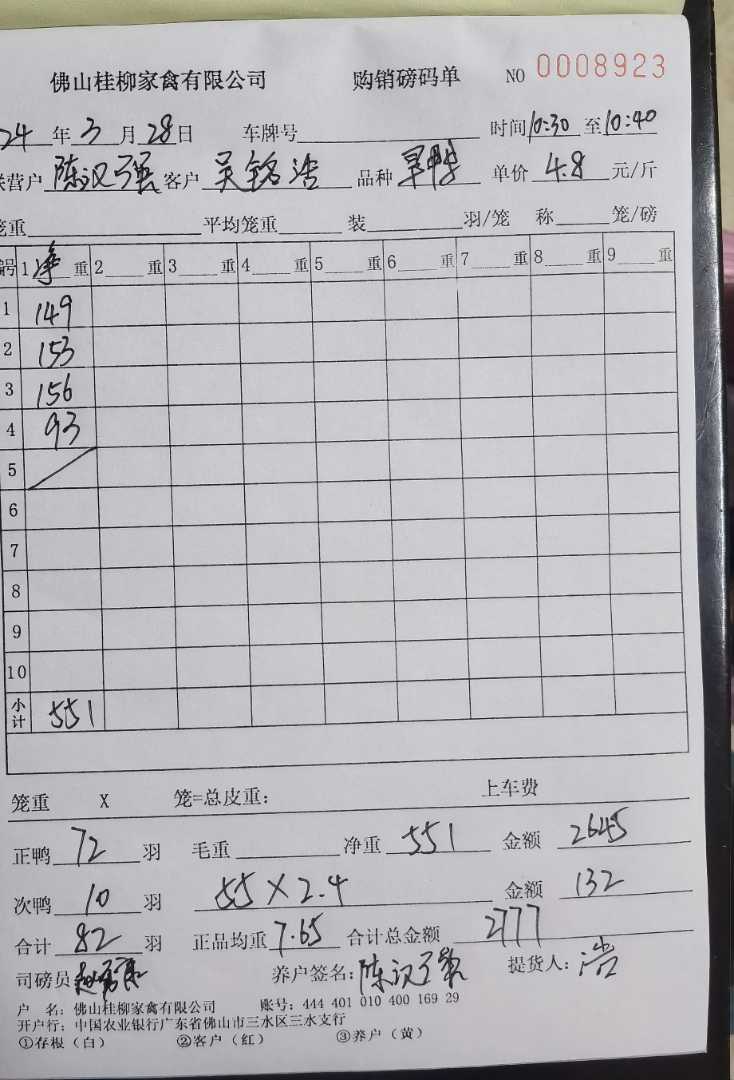 佛山桂柳家禽有限公司 购销磅码单 NO 0008923
24 年 3 月 28 日 车牌号 时间 10:30 至 10:40
联营户 陈汉强 客户 吴铭浩 品种 旱鸭 单价 4.8 元/斤
笼重 平均笼重 装 羽/笼 称 笼/磅
编号 1 净 重 2 重 3 重 4 重 5 重 6 重 7 重 8 重 9 重
1 149
2 153
3 156
4 93
5
6
7
8
9
10
小计 551
笼重 X 笼=总皮重: 上车费
正鸭 72 羽 毛重 净重 551 金额 2645
次鸭 10 羽 55×2.4 金额 132
合计 82 羽 正品均重 7.65 合计总金额 2777
司磅员 养户签名: 陈汉强 提货人: 浩
户 名: 佛山桂柳家禽有限公司 账号: 444 401 010 400 169 29
开户行: 中国农业银行广东省佛山市三水区三水支行
①存根(白) ②客户(红) ③养户(黄)